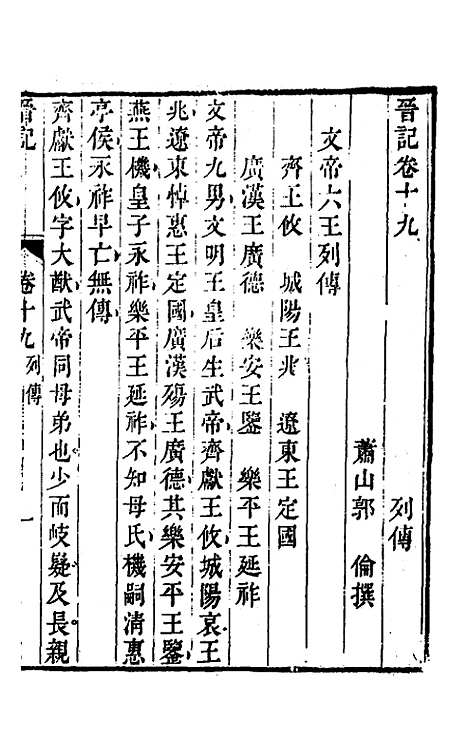 晉記卷十九　列傳
蕭山郭　倫撰
文帝六王列傳
齊王攸　城陽王兆　遼東王定國
廣漢王廣德　樂安王鑒　樂平王延祚
文帝九男文明王皇后生武帝齊獻王攸城陽哀王
兆遼東悼惠王定國廣漢殤王廣德其樂安平王鑒
燕王機皇子永祚樂平王延祚不知母氏機嗣清惠
亭侯永祚早亡無傳
齊獻王攸字大猷武帝同母弟也少而岐嶷及長親
晉記　卷十九列傳　一